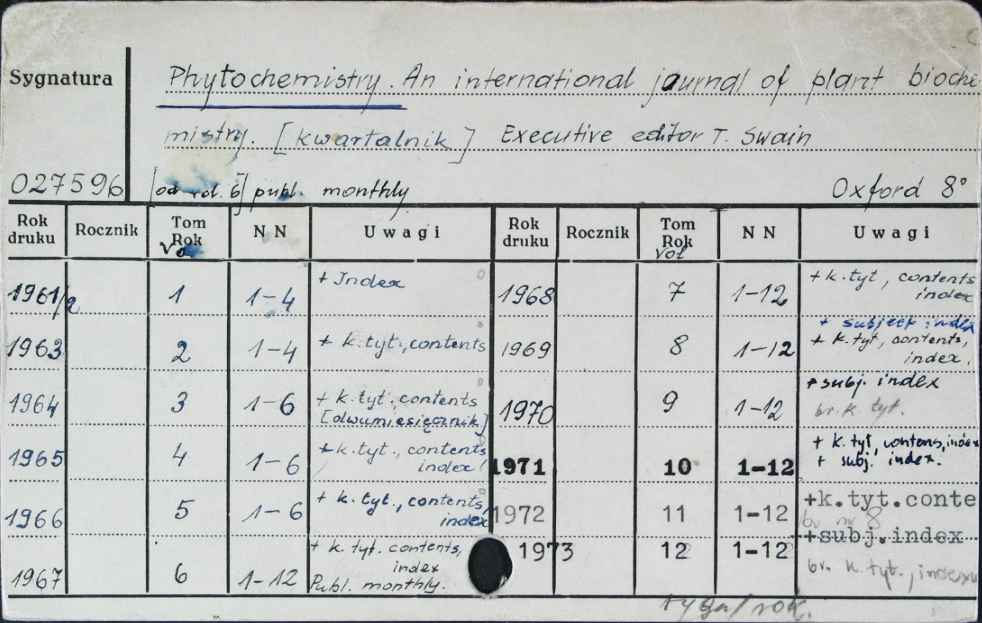 Sygnatura
Phytochemistry. An international journal of plant bioche
mistry. [kwartalnik] Executive editor T. Swain
027596 [od vol. 6] publ. monthly Oxford 8°
Rok druku Rocznik Tom Rok Vol NN Uwagi Rok druku Rocznik Tom Rok Vol NN Uwagi
1961/2 1 1-4 + Index
1963 2 1-4 + k.tyt., contents
1964 3 1-6 + k.tyt., contents
[dwumiesięcznik]
1965 4 1-6 + k.tyt., contents
index!
1966 5 1-6 + k.tyt., contents
index
1967 6 1-12 + k.tyt. contents,
index
Publ. monthly.
1968 7 1-12 + k.tyt, contents
index
1969 8 1-12 + subject index
+ k.tyt, contents,
index.
1970 9 1-12 + subj. index
br. k tyt.
1971 10 1-12 + k.tyt, contens, index
+ subj. index.
1972 11 1-12 +k.tyt.conte
br nr 8
+subj.index
1973 12 1-12 br. k.tyt., indexu